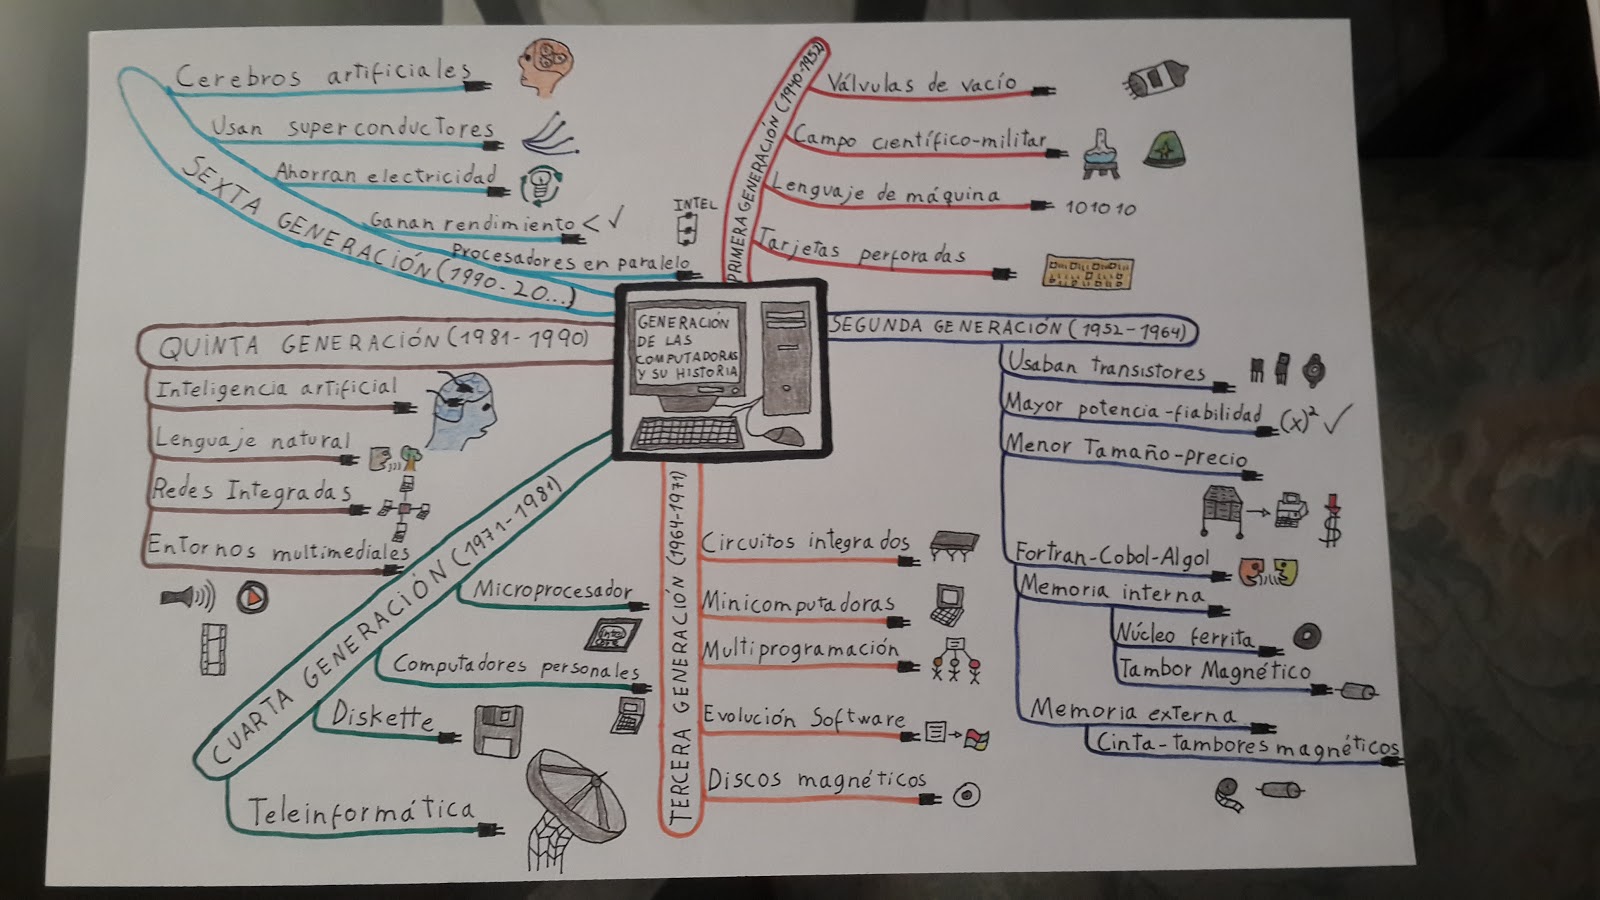 GENERACIÓN
DE LAS
COMPUTADORAS
Y SU HISTORIA
PRIMERA GENERACIÓN (1940-1952)
Válvulas de vacío
Campo científico-militar
Lenguaje de máquina
101010
Tarjetas perforadas
SEGUNDA GENERACIÓN (1952-1964)
Usaban transistores
Mayor potencia-fiabilidad (x)² ✓
Menor Tamaño-precio
$
Fortran-Cobol-Algol
Memoria interna
Núcleo ferrita
Tambor Magnético
Memoria externa
Cinta-tambores magnéticos
TERCERA GENERACIÓN (1964-1971)
Circuitos integrados
Minicomputadoras
Multiprogramación
Evolución Software
Discos magnéticos
CUARTA GENERACIÓN (1971-1981)
Microprocesador
intel
Computadores personales
Diskette
Teleinformática
QUINTA GENERACIÓN (1981-1990)
Inteligencia artificial
Lenguaje natural
Redes Integradas
Entornos multimediales
SEXTA GENERACIÓN (1990-20...)
Cerebros artificiales
Usan superconductores
Ahorran electricidad
Ganan rendimiento < ✓
Procesadores en paralelo
INTEL